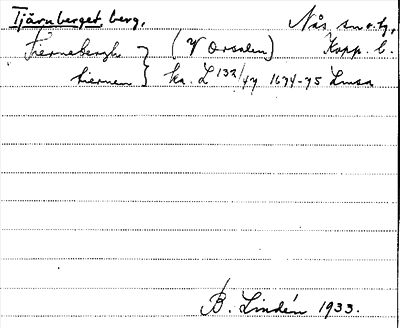 Tjärnberget, berg. Nås sn o. hg,
Tiernebergh } (V Orsalen) Kopp. l.
tiernen } ka. L 132/47 1674-75 Lmsa
B. Lindén 1933.